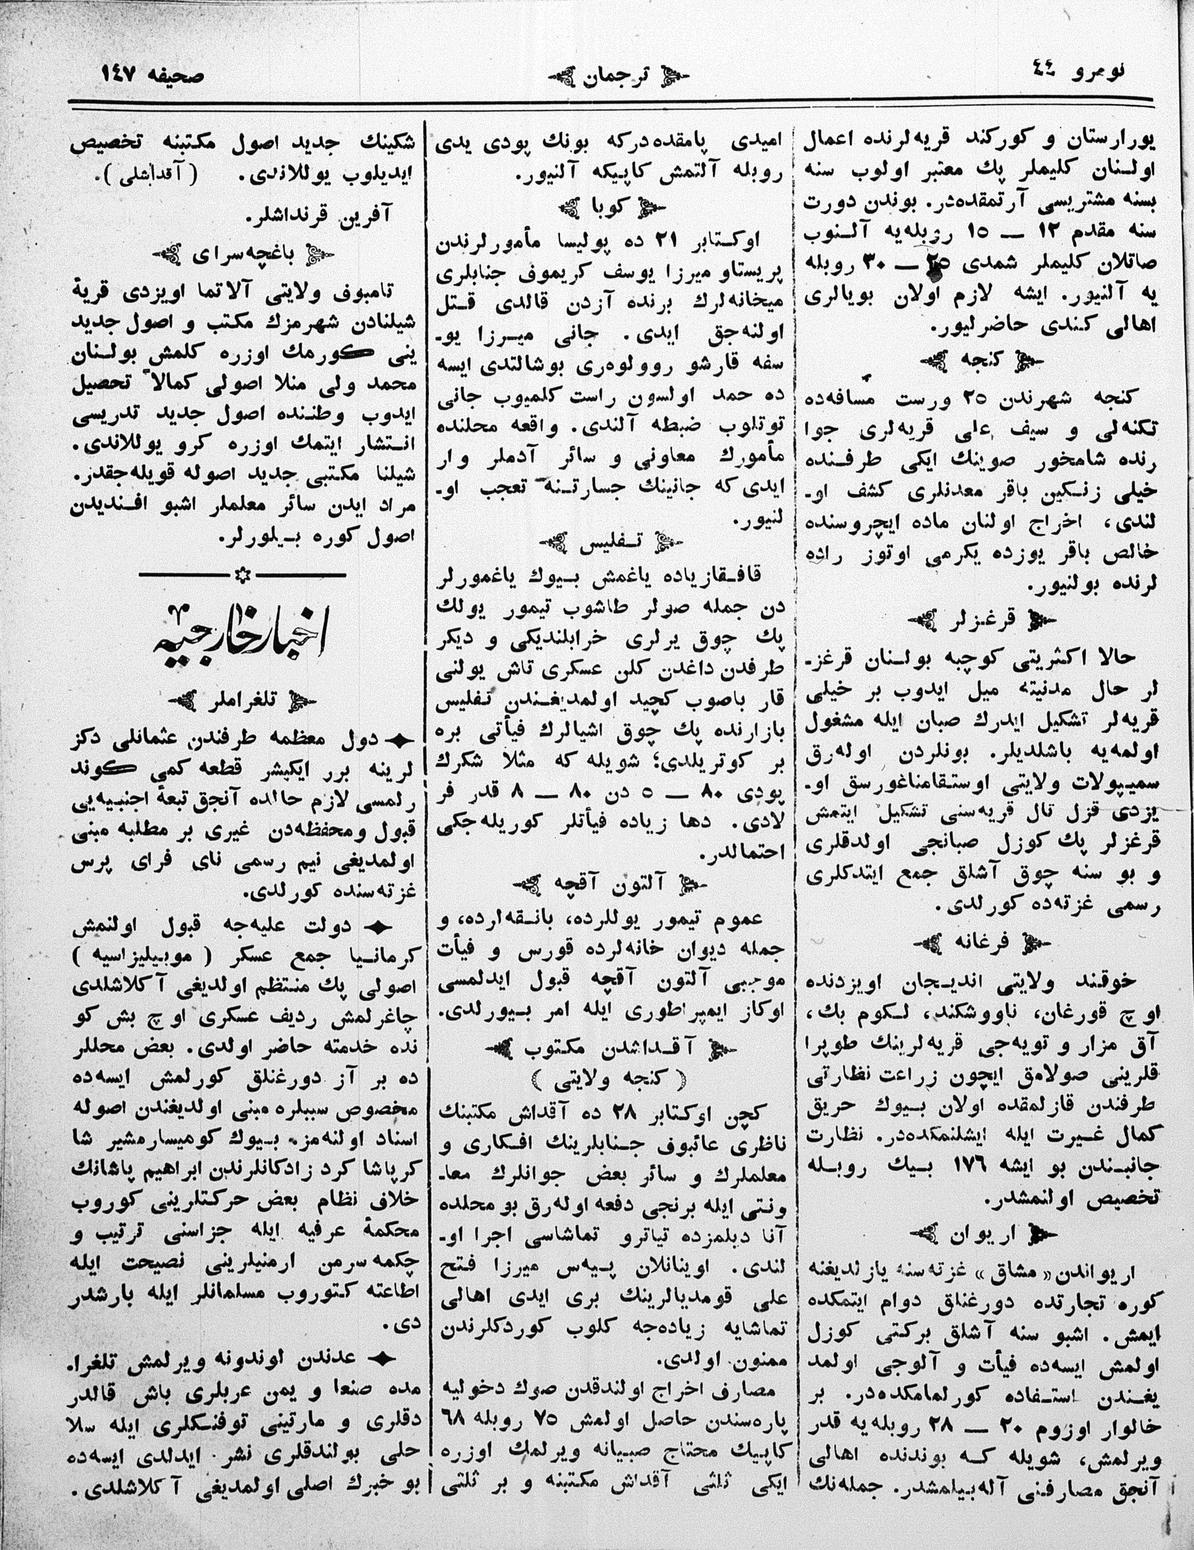 نومرو ٤٤
ترجمان
صحيفه ١٤٧
يورارستان و كوركند قريه‌لرنده اعمال
اولنان كليملر پك معتبر اولوب سنه
بسنه مشتريسى آرتمقده‌در. بوندن دورت
سنه مقدم ١٢ — ١٥ روبله‌يه آلنوب
صاتلان كليملر شمدى ٢٥ — ٣٠ روبله
يه آلنيور. ايشه لازم اولان بويالرى
اهالى كندى حاضرليور.
كنجه
كنجه شهرندن ٢٥ ورست مسافه‌ده
تكنه‌لى و سيف على قريه‌لرى جوا
رنده شامخور صوينك ايكى طرفنده
خيلى زنكين باقر معدنلرى كشف او‍
لندى، اخراج اولنان ماده ايچروسنده
خالص باقر يوزده يكرمى اوتوز راده
لرنده بولنيور.
قرغزلر
حالا اكثريتى كوچبه بولنان قرغز‍
لر حال مدنيته ميل ايدوب بر خيلى
قريه‌لر تشكيل ايدرك صبان ايله مشغول
اولمه‌يه باشلديلر. بونلردن اوله‌رق
سميپولات ولايتى اوستقامناغورسق او‍
يزدى قزل تال قريه‌سنى تشكيل ايتمش
قرغزلر پك كوزل صبانجى اولدقلرى
و بو سنه چوق آشلق جمع ايتدكلرى
رسمى غزته‌ده كورلدى.
فرغانه
خوقند ولايتى انديجان اويزدنده
اوچ قورغان، ناووشكند، لكوم بك،
آق مزار و تويه‌جى قريه‌لرينك طوپرا
قلرينى صولامق ايچون زراعت نظارتى
طرفندن قازلمقده اولان بيوك حريق
كمال غيرت ايله ايشلنمكده‌در. نظارت
جانبندن بو ايشه ١٧٦ بيك روبله
تخصيص اولنمشدر.
اريوان
اريواندن «مشاق» غزته‌سنه يازلديغنه
كوره تجارتده دورغنلق دوام ايتمكده
ايمش. اشبو سنه آشلق بركتى كوزل
اولمش ايسه‌ده فيأت و آلوجى اولمد
يغندن استفاده كورلمامكده‌در. بر
خالوار اوزوم ٢٠ — ٢٨ روبله‌يه قدر
ويرلمش، شويله كه بوندنده اهالى
آنجق مصارفنى آله‌بيلمشدر. جمله‌نك
اميدى پامقده‌دركه بونك پودى يدى
روبله آلتمش كاپيكه آلنيور.
كوبا
اوكتابر ٢١ ده پوليسا مأمورلرندن
پريستاو ميرزا يوسف كريموف جنابلرى
ميخانه‌لرك برنده آزدن قالدى قتل
اولنه‌جق ايدى. جانى ميرزا يو‍
سفه قارشو روولوه‌رى بوشالتدى ايسه
ده حمد اولسون راست كلميوب جانى
توتلوب ضبطه آلندى. واقعه محلنده
مأمورك معاونى و سائر آدملر وار
ايدى‌كه جانينك جسارتنه تعجب او‍
لنيور.
تفليس
قافقازياده ياغمش بيوك ياغمورلر
دن جمله صولر طاشوب تيمور يولك
پك چوق يرلرى خرابلنديكى و ديكر
طرفدن داغدن كلن عسكرى تاش يولنى
قار باصوب كچيد اولمديغندن تفليس
بازارنده پك چوق اشيالرك فيأتى بره
بر كوتريلدى؛ شويله كه مثلا شكرك
پودى ٨٠ — ٥ دن ٨٠ — ٨ قدر فر
لادى. دها زياده فيأتلر كوريله‌جكى
احتمالدر.
آلتون آقچه
عموم تيمور يوللرده، بانقه‌لرده، و
جمله ديوان خانه‌لرده قورس و فيأت
موجبى آلتون آقچه قبول ايدلمسى
اوكاز ايمپراطورى ايله امر بيورلدى.
آقداشدن مكتوب
(كنجه ولايتى)
كچن اوكتابر ٢٨ ده آقداش مكتبنك
ناظرى عائبوف جنابلرينك افكارى و
معلملرك و سائر بعض جوانلرك معا‍
ونتى ايله برنجى دفعه اوله‌رق بو محلده
آنا ديلمزده تياترو تماشاسى اجرا او‍
لندى. اوينانلان پيه‌س ميرزا فتح
على قومديالرينك برى ايدى اهالى
تماشايه زياده‌جه كلوب كوردكلرندن
ممنون اولدى.
مصارف اخراج اولندقدن صوك دخوليه
پاره‌سندن حاصل اولمش ٧٥ روبله ٦٨
كاپيك محتاج صبيانه ويرلمك اوزره
ايكى ثلثى آقداش مكتبنه و بر ثلثى
شكينك جديد اصول مكتبنه تخصيص
ايديلوب يوللاندى. (آقداشلى).
آفرين قرنداشلر.
باغچه‌سراى
تامبوف ولايتى آلاتما اويزدى قريهٔ
شيلنادن شهرمزك مكتب و اصول جديد
ينى كورمك اوزره كلمش بولنان
محمد ولى منلا اصولى كمالاً تحصيل
ايدوب وطننده اصول جديد تدريسى
انتشار ايتمك اوزره كرو يوللاندى.
شيلنا مكتبى جديد اصوله قويله‌جقدر.
مراد ايدن سائر معلملر اشبو افنديدن
اصول كوره بيلورلر.
اخبار خارجيه
تلغراملر
دول معظمه طرفندن عثمانلى دكز
لرينه برر ايكيشر قطعه كمى كوند
رلمسى لازم حالده آنجق تبعهٔ اجنبيه‌يى
قبول و محفظه‌دن غيرى بر مطلبه مبنى
اولمديغى نيم رسمى ناى فراى پرس
غزته‌سنده كورلدى.
دولت عليه‌جه قبول اولنمش
كرمانيا جمع عسكر (موبيليزاسيه)
اصولى پك منتظم اولديغى آكلاشلدى
چاغرلمش رديف عسكرى اوچ بش كو
نده خدمته حاضر اولدى. بعض محللر
ده بر آز دورغنلق كورلمش ايسه‌ده
مخصوص سببلره مبنى اولديغندن اصوله
اسناد اولنه‌مز. بيوك كوميسار مشير شا
كر پاشا كرد زادكانلرندن ابراهيم پاشانك
خلاف نظام بعض حركتلرينى كوروب
محكمهٔ عرفيه ايله جزاسنى ترتيب و
چكمه سرمن ارمنيلرينى نصيحت ايله
اطاعته كتوروب مسلمانلر ايله بارشدر
دى.
عدندن لوندونه ويرلمش تلغرا‍
مده صنعا و يمن عربلرى باش قالدر
دقلرى و مارتينى توفنكلرى ايله سلا
حلى بولندقلرى نشر ايدلدى ايسه‌ده
بو خبرك اصلى اولمديغى آكلاشلدى.